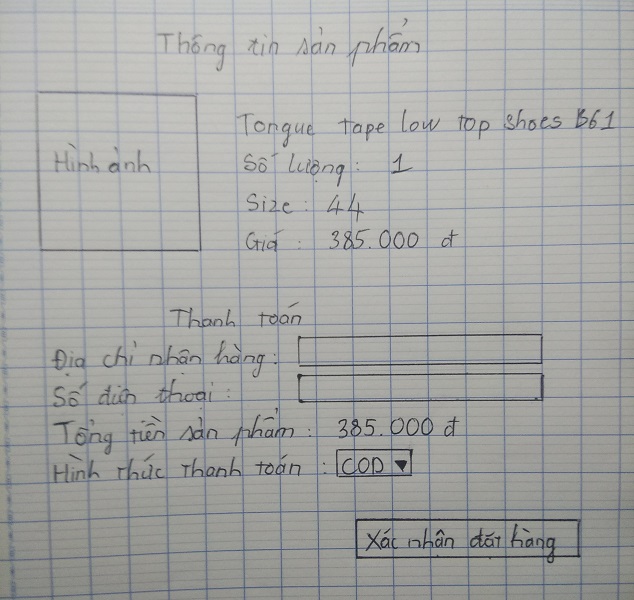 Thông tin sản phẩm
Hình ảnh
Tongue tape low top shoes B61
Số lượng: 1
Size: 44
Giá: 385.000 đ
Thanh toán
Địa chỉ nhận hàng:
Số điện thoại:
Tổng tiền sản phẩm: 385.000 đ
Hình thức thanh toán: COD ▼
Xác nhận đặt hàng